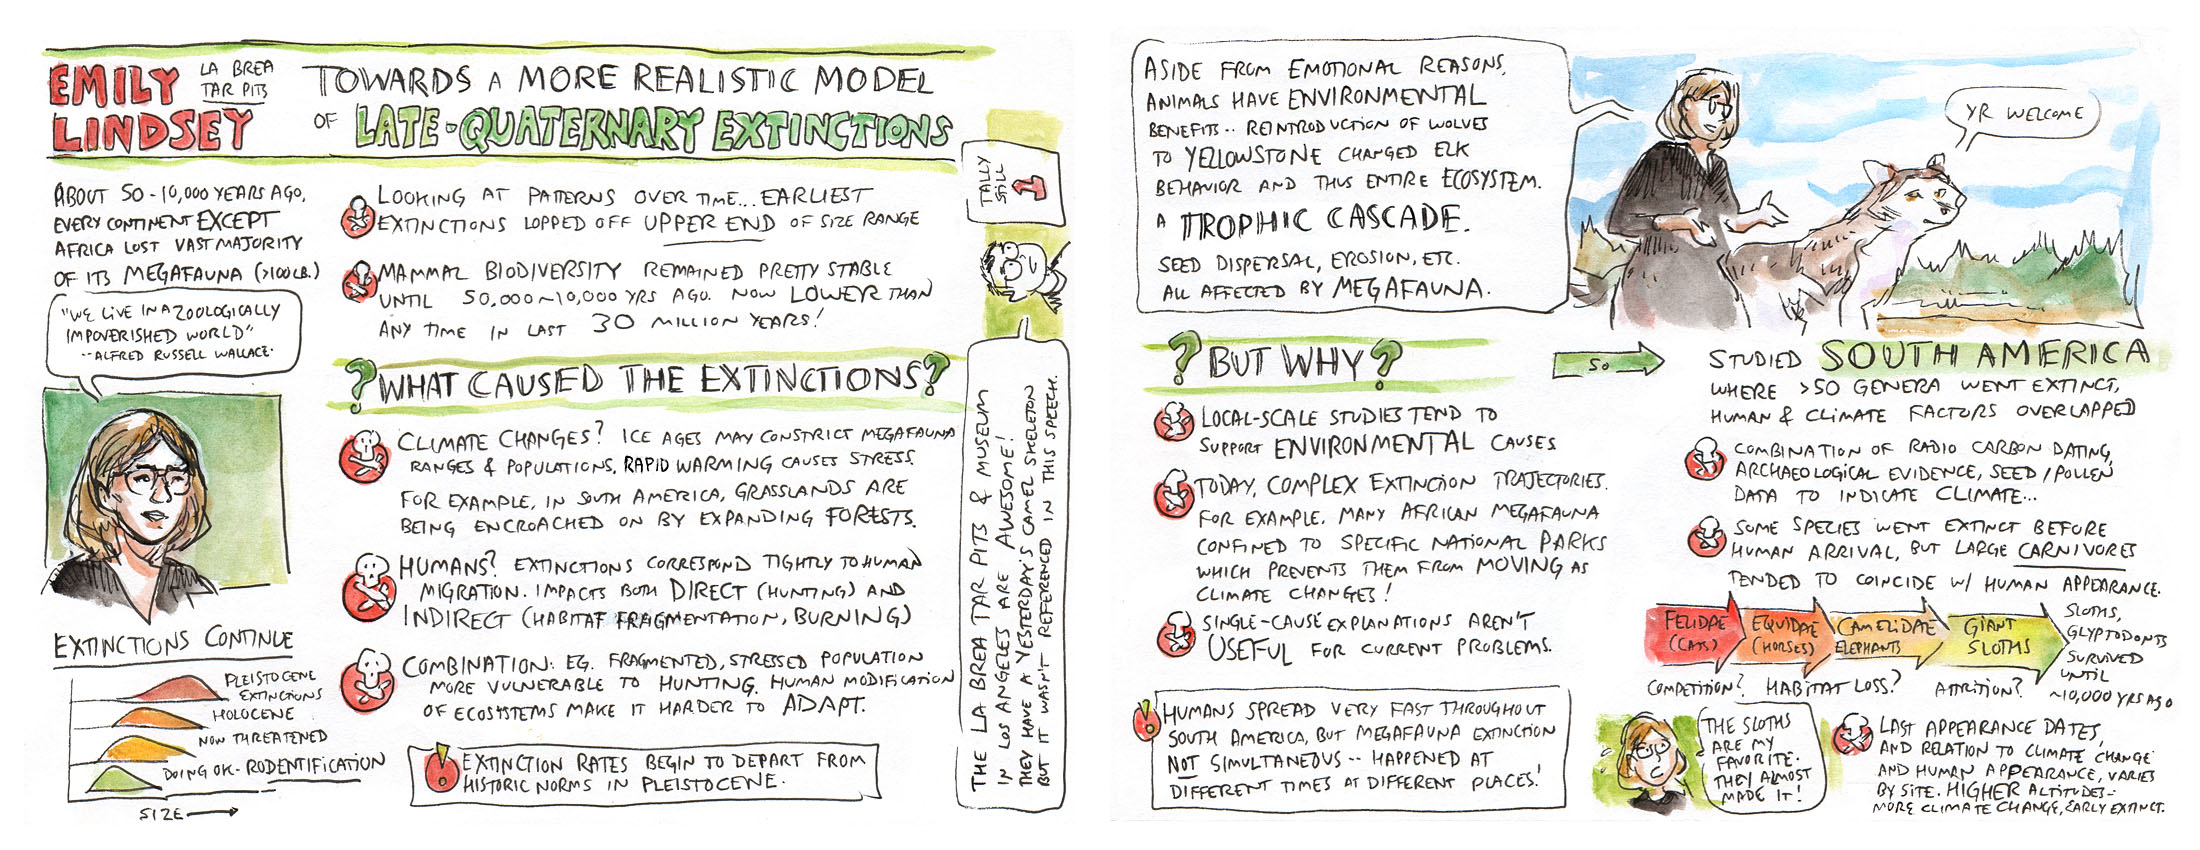 EMILY
LINDSEY
LA BREA
TAR PITS
TOWARDS A MORE REALISTIC MODEL
OF LATE-QUATERNARY EXTINCTIONS
ABOUT 50-10,000 YEARS AGO,
EVERY CONTINENT EXCEPT
AFRICA LOST VAST MAJORITY
OF ITS MEGAFAUNA (>100LB.)
"WE LIVE IN A ZOOLOGICALLY
IMPOVERISHED WORLD"
--ALFRED RUSSELL WALLACE.
EXTINCTIONS CONTINUE
PLEISTOCENE
EXTINCTIONS
HOLOCENE
NOW THREATENED
DOING OK - RODENTIFICATION
SIZE
LOOKING AT PATTERNS OVER TIME... EARLIEST
EXTINCTIONS LOPPED OFF UPPER END OF SIZE RANGE
MAMMAL BIODIVERSITY REMAINED PRETTY STABLE
UNTIL 50,000~10,000 YRS AGO. NOW LOWER THAN
ANY TIME IN LAST 30 MILLION YEARS!
? WHAT CAUSED THE EXTINCTIONS?
CLIMATE CHANGES? ICE AGES MAY CONSTRICT MEGAFAUNA
RANGES & POPULATIONS, RAPID WARMING CAUSES STRESS.
FOR EXAMPLE, IN SOUTH AMERICA, GRASSLANDS ARE
BEING ENCROACHED ON BY EXPANDING FORESTS.
HUMANS? EXTINCTIONS CORRESPOND TIGHTLY TO HUMAN
MIGRATION. IMPACTS BOTH DIRECT (HUNTING) AND
INDIRECT (HABITAT FRAGMENTATION, BURNING)
COMBINATION: EG. FRAGMENTED, STRESSED POPULATION
MORE VULNERABLE TO HUNTING. HUMAN MODIFICATION
OF ECOSYSTEMS MAKE IT HARDER TO ADAPT.
! EXTINCTION RATES BEGIN TO DEPART FROM
HISTORIC NORMS IN PLEISTOCENE.
TALLY
STILL
1
THE LA BREA TAR PITS & MUSEUM
IN LOS ANGELES ARE AWESOME!
THEY HAVE A YESTERDAY'S CAMEL SKELETON
BUT IT WASN'T REFERENCED IN THIS SPEECH.
ASIDE FROM EMOTIONAL REASONS,
ANIMALS HAVE ENVIRONMENTAL
BENEFITS-- REINTRODUCTION OF WOLVES
TO YELLOWSTONE CHANGED ELK
BEHAVIOR AND THUS ENTIRE ECOSYSTEM.
A TROPHIC CASCADE.
SEED DISPERSAL, EROSION, ETC.
ALL AFFECTED BY MEGAFAUNA.
YR WELCOME
? BUT WHY?
LOCAL-SCALE STUDIES TEND TO
SUPPORT ENVIRONMENTAL CAUSES
TODAY, COMPLEX EXTINCTION TRAJECTORIES.
FOR EXAMPLE, MANY AFRICAN MEGAFAUNA
CONFINED TO SPECIFIC NATIONAL PARKS
WHICH PREVENTS THEM FROM MOVING AS
CLIMATE CHANGES!
SINGLE-CAUSE EXPLANATIONS AREN'T
USEFUL FOR CURRENT PROBLEMS.
! HUMANS SPREAD VERY FAST THROUGHOUT
SOUTH AMERICA, BUT MEGAFAUNA EXTINCTION
NOT SIMULTANEOUS -- HAPPENED AT
DIFFERENT TIMES AT DIFFERENT PLACES!
SO
STUDIED SOUTH AMERICA
WHERE >50 GENERA WENT EXTINCT,
HUMAN & CLIMATE FACTORS OVERLAPPED
COMBINATION OF RADIO CARBON DATING,
ARCHAEOLOGICAL EVIDENCE, SEED/POLLEN
DATA TO INDICATE CLIMATE...
SOME SPECIES WENT EXTINCT BEFORE
HUMAN ARRIVAL, BUT LARGE CARNIVORES
TENDED TO COINCIDE W/ HUMAN APPEARANCE.
FELIDAE
(CATS)
EQUIDAE
(HORSES)
CAMELIDAE
ELEPHANTS
GIANT
SLOTHS
SLOTHS,
GLYPTODONTS
SURVIVED
UNTIL
~10,000 YRS AGO
COMPETITION? HABITAT LOSS? ATTRITION?
THE SLOTHS
ARE MY
FAVORITE.
THEY ALMOST
MADE IT!
LAST APPEARANCE DATES,
AND RELATION TO CLIMATE CHANGE
AND HUMAN APPEARANCE, VARIES
BY SITE. HIGHER ALTITUDES--
MORE CLIMATE CHANGE, EARLY EXTINCT.